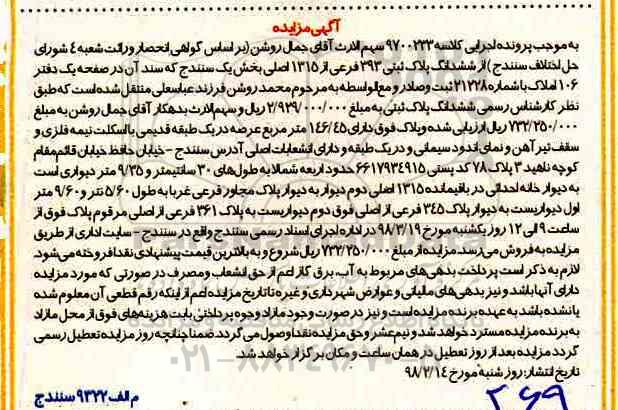 آگهی مزایده
به موجب پرونده اجرایی کلاسه ۹۷۰۰۲۳۳ سهم الارث آقای جمال روشن (بر اساس گواهی انحصار وراثت شعبه ۴ شورای
حل اختلاف سنندج) از ششدانگ پلاک ثبتی ۳۹۳ فرعی از ۱۳۱۵ اصلی بخش یک سنندج که سند آن در صفحه یک دفتر
۱۰۶ املاک با شماره ۲۱۲۲۸ ثبت و صادر و مع الواسطه به مرحوم محمد روشن فرزند عباسعلی منتقل شده است که طبق
نظر کارشناس رسمی ششدانگ پلاک ثبتی به مبلغ ۲/۹۲۹/۰۰۰/۰۰۰ ریال و سهم الارث بدهکار آقای جمال روشن به مبلغ
۷۳۲/۲۵۰/۰۰۰ ریال ارزیابی شده و پلاک فوق دارای ۱۴۶/۴۵ متر مربع عرصه در یک طبقه قدیمی با اسکلت نیمه فلزی و
سقف تیر آهن و نمای اندود سیمانی و در یک طبقه و دارای انشعابات اصلی آدرس سنندج - خیابان حافظ خیابان قائم مقام
کوچه ناهید ۳ پلاک ۷۸ کد پستی ۶۶۱۷۹۳۴۹۱۵ حدود اربعه شمالا به طول های ۳۰ سانتیمتر و ۹/۳۵ متر دیواری است
به دیوار خانه احداثی در باقیمانده ۱۳۱۵ اصلی دوم دیوار به دیوار پلاک مجاور فرعی غربا به طول ۵/۶۰ متر و ۹/۶۰ متر
اول دیواریست به دیوار پلاک ۳۴۵ فرعی از اصلی فوق دوم دیواریست به پلاک ۳۶۱ فرعی از اصلی مرقوم پلاک فوق از
ساعت ۹ الی ۱۲ روز یکشنبه مورخ ۹۸/۳/۱۹ در اداره اجرای اسناد رسمی سنندج واقع در سنندج - سایت اداری از طریق
مزایده به فروش می رسد. مزایده از مبلغ ۷۳۲/۲۵۰/۰۰۰ ریال شروع و به بالاترین قیمت پیشنهادی نقدا فروخته می شود.
لازم به ذکر است پرداخت بدهی های مربوط به آب، برق گاز اعم از حق انشعاب و مصرف در صورتی که مورد مزایده
دارای آنها باشد و نیز بدهی های مالیاتی و عوارض شهرداری و غیره تا تاریخ مزایده اعم از اینکه رقم قطعی آن معلوم شده
یا نشده باشد به عهده برنده مزایده است و نیز در صورت وجود مازاد وجوه پرداختی بابت هزینه های فوق از محل مازاد
به برنده مزایده مسترد خواهد شد و نیم عشر و حق مزایده نقدا وصول می گردد. ضمنا چنانچه روز مزایده تعطیل رسمی
گردد مزایده بعد از روز تعطیل در همان ساعت و مکان برگزار خواهد شد
تاریخ انتشار: روز شنبه مورخ ۹۸/۲/۱۴
م الف ۹۳۲۲ سنندج
۲۶۹